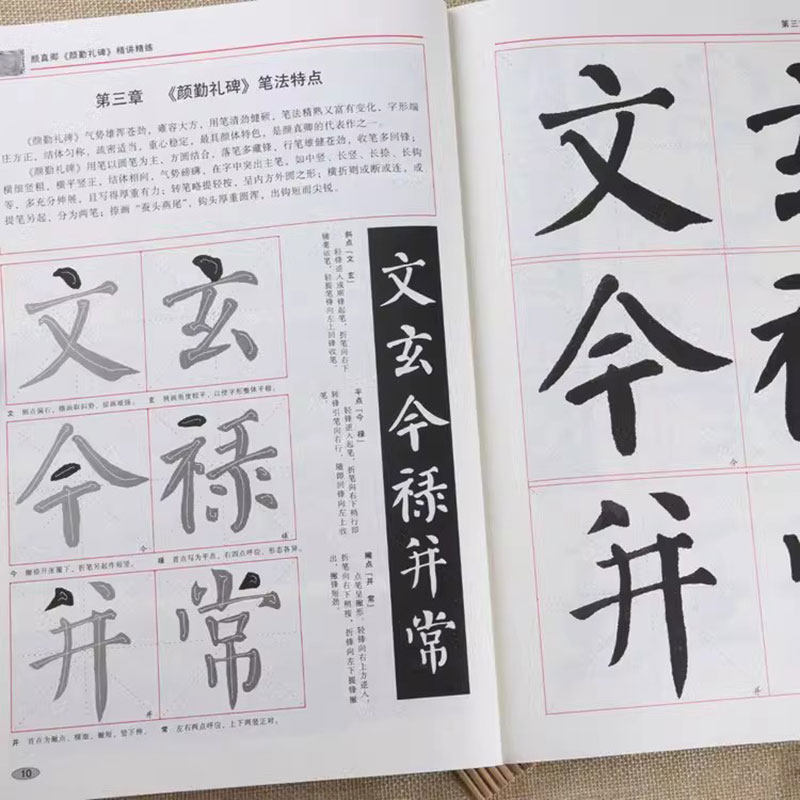 颜真卿《颜勤礼碑》精讲精练
第三章 《颜勤礼碑》笔法特点
《颜勤礼碑》气势雄浑苍劲，雍容大方，用笔清劲健硕，笔法精熟又富有变化，字形端
庄方正，结体匀称，疏密适当，重心稳定，最具颜体特色，是颜真卿的代表作之一。
《颜勤礼碑》用笔以圆笔为主，方圆结合，落笔多藏锋，行笔雄健苍劲，收笔多回锋；
横细竖粗，横平竖正，结体相向，气势磅礴，在字中突出主笔，如中竖、长竖、长捺、长钩
等，多充分伸展，且写得厚重有力；转笔略提轻按，呈内方外圆之形；横折则或断或连，或
提笔另起，分为两笔；捺画“蚕头燕尾”，钩头厚重圆浑，出钩短而尖锐。
文 玄
文 侧点偏右，横画取斜势，捺画难强。
今 禄
今
禄
今 撇捺开张覆下，折笔另起作短竖。
禄 首点写为平点，右四点呼应，形态各异。
并 常
并
并 首点为撇点，横细，撇短，竖下伸。
常 左右两点呼应，上下两竖正对。
斜点「文 玄」
轻锋逆入或顺锋起笔，折笔向右下
铺毫运笔，轻提笔锋向左上回锋收笔。
平点「今 禄」
轻锋逆入起笔，折笔向右下稍行即
转锋引笔向右行，随即回锋向左上收
笔。
撇点「并 常」
点笔呈撇形。轻锋向右上方逆入，
折笔向右下稍按，折锋向左下提锋撇
出，撇锋短劲。
文玄今禄并常
10
第三
文
今
今
并
并